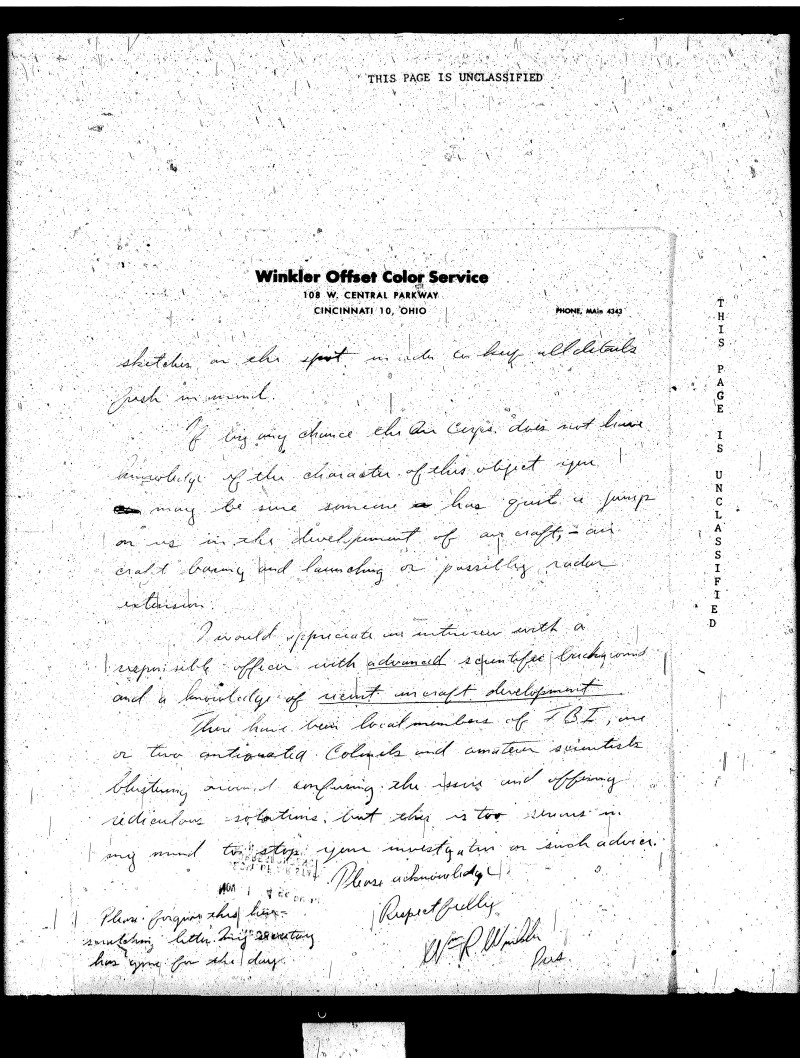 THIS PAGE IS UNCLASSIFIED
Winkler Offset Color Service
108 W. CENTRAL PARKWAY
CINCINNATI 10, OHIO
PHONE, MAin 4343
sketches on the spot in order to keep all details
fresh in mind.
If by any chance the Air Corps. does not have
knowledge of the character of this object you
may be sure someone has quite a jump
on us in the development of air craft, - air
craft basing and launching or possibly radar
extension.
I would appreciate an interview with a
responsible officer with advanced scientific background
and a knowledge of recent aircraft development.
There have been local members of F B I, one
or two antiquated Colonels and amateur scientists
blustering around confusing the issue and offering
ridiculous solutions, but this is too serious in
my mind to stop your investigation on such advice.
Please acknowledge
Respectfully
Wm R. Winkler
Pres
Please forgive this hen-
scratching letter. My secretary
has gone for the day.
THIS PAGE IS UNCLASSIFIED